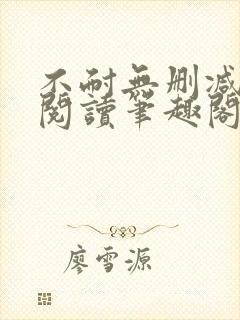 不耐無刪减
閱讀筆趣閣
廖雪源